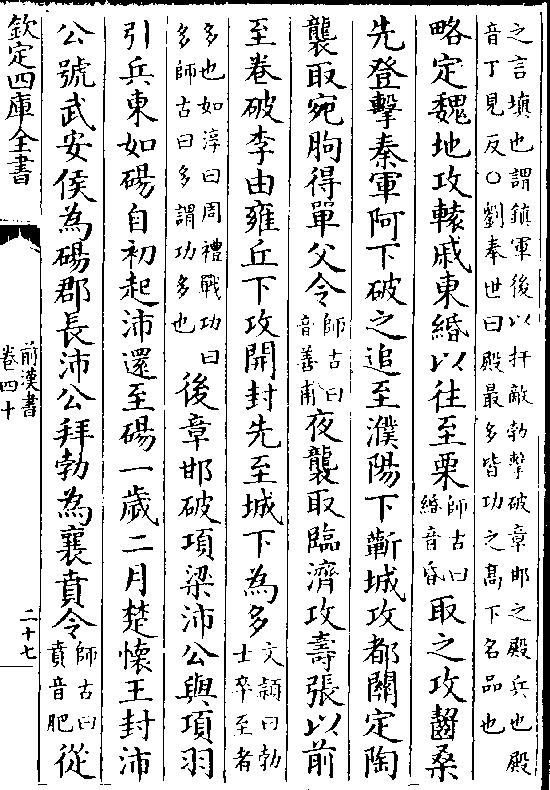 之言填也謂鎮軍後以扞敵勃擊破章邯之殿兵也殿
音丁見反○劉奉世曰殿最多皆功之髙下名品也
略定魏地攻轅戚東緡以往至栗師古曰緡音昏取之攻齧桑
先登擊秦軍阿下破之追至濮陽下蘄城攻都關定陶
襲取宛朐得單父令師古曰音善甫夜襲取臨濟攻壽張以前
至卷破李由雍丘下攻開封先至城下為多文頴曰勃士卒至者
多也如淳曰周禮戰功曰多師古曰多謂功多也後章邯破項梁沛公與項羽
引兵東如碭自初起沛還至碭一歲二月楚懷王封沛
公號武安侯為碭郡長沛公拜勃為襄賁令師古曰賁音肥從
欽定四庫全書
前漢書
卷四十
二十七